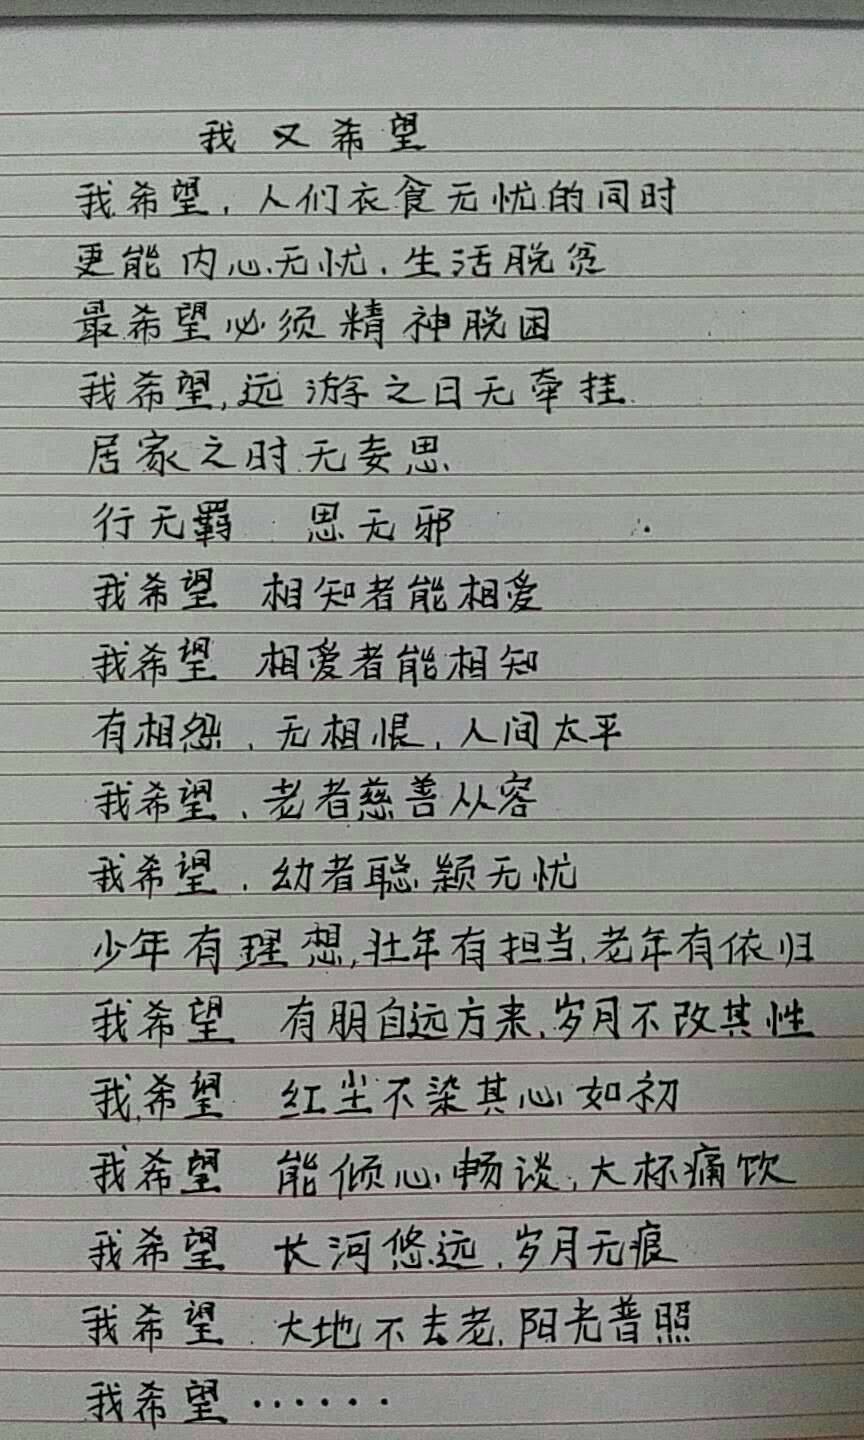 我又希望
我希望,人们衣食无忧的同时
更能内心无忧,生活脱贫
最希望必须精神脱困
我希望,远游之日无牵挂.
居家之时无妄思
行无羁 思无邪
我希望 相知者能相爱
我希望 相爱者能相知
有相怨,无相恨,人间太平
我希望,老者慈善从容
我希望,幼者聪颖无忧
少年有理想,壮年有担当,老年有依归
我希望 有朋自远方来,岁月不改其性
我希望 红尘不染其心如初
我希望 能倾心畅谈,大杯痛饮
我希望 长河悠远,岁月无痕
我希望 大地不去老,阳光普照
我希望······